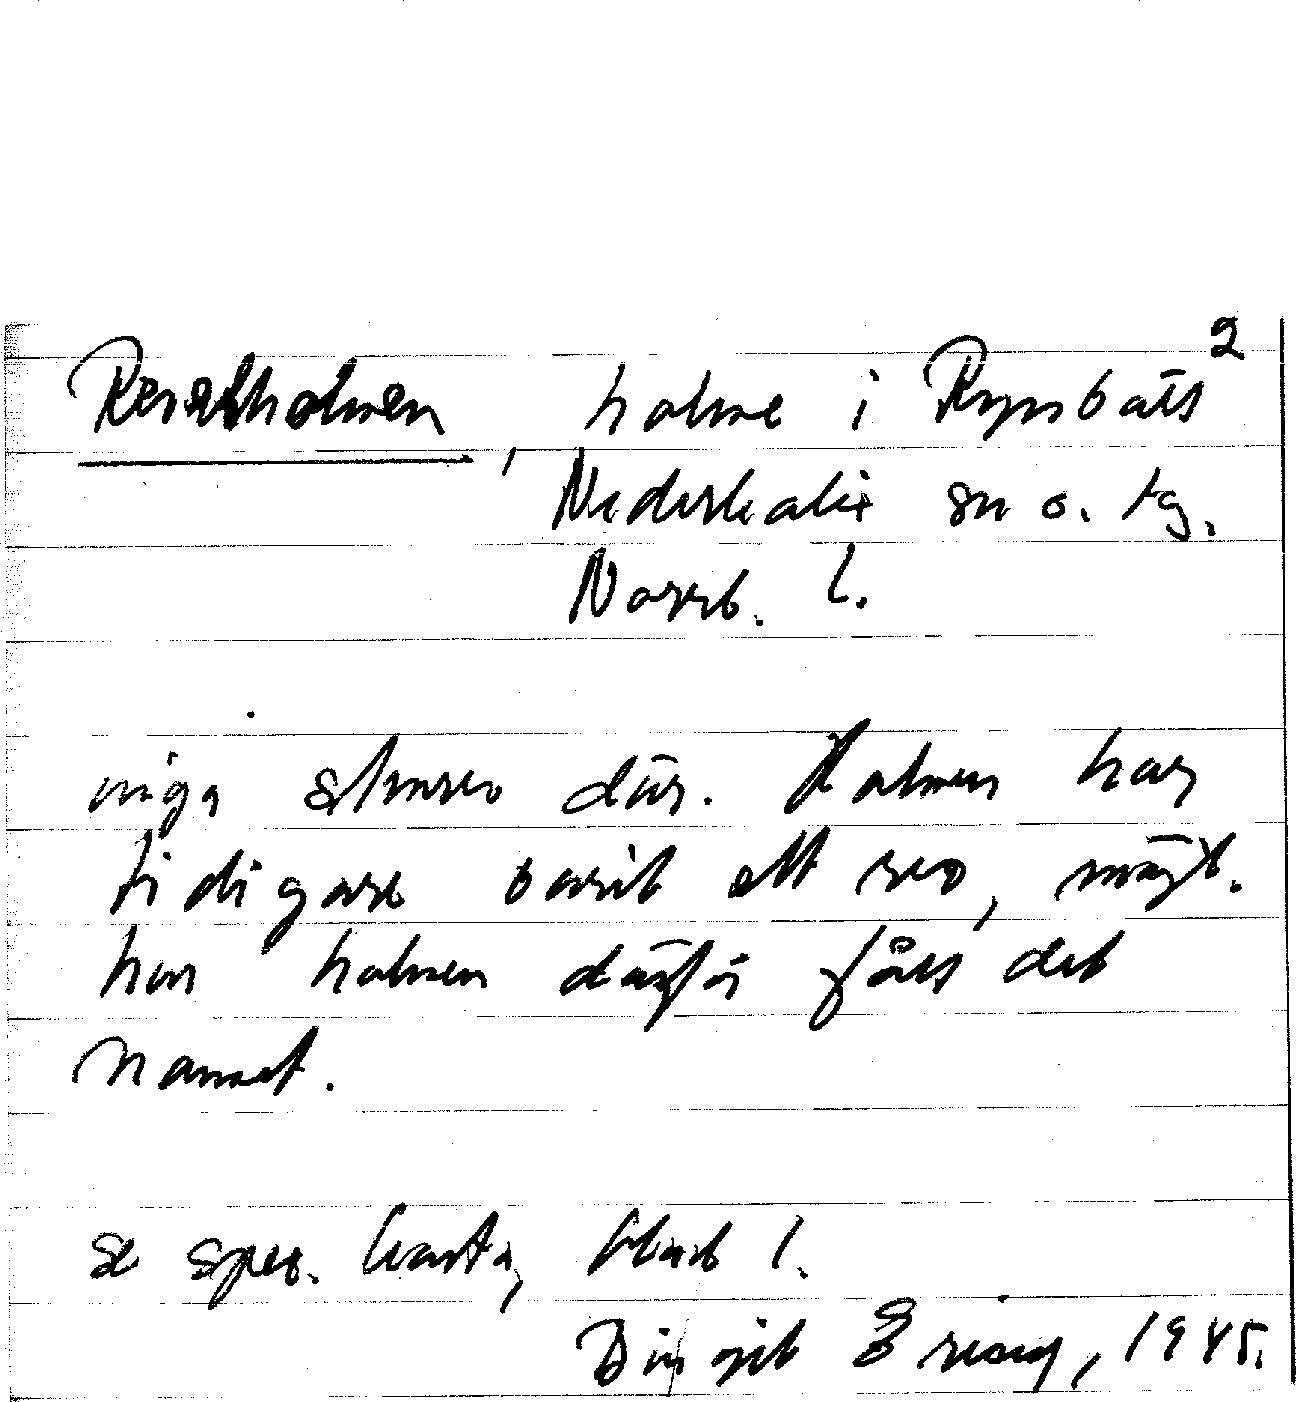 2
Revelholmen, holme i Rynbäcks
Nederkalix sn o. tg.
Norrb. l.
inga stenrev där. Holmen har
tidigare varit ett rev, möjl.
har holmen därför fått det
namnet.
se spec. karta, blad 1.
Birgit Ericson, 1945.